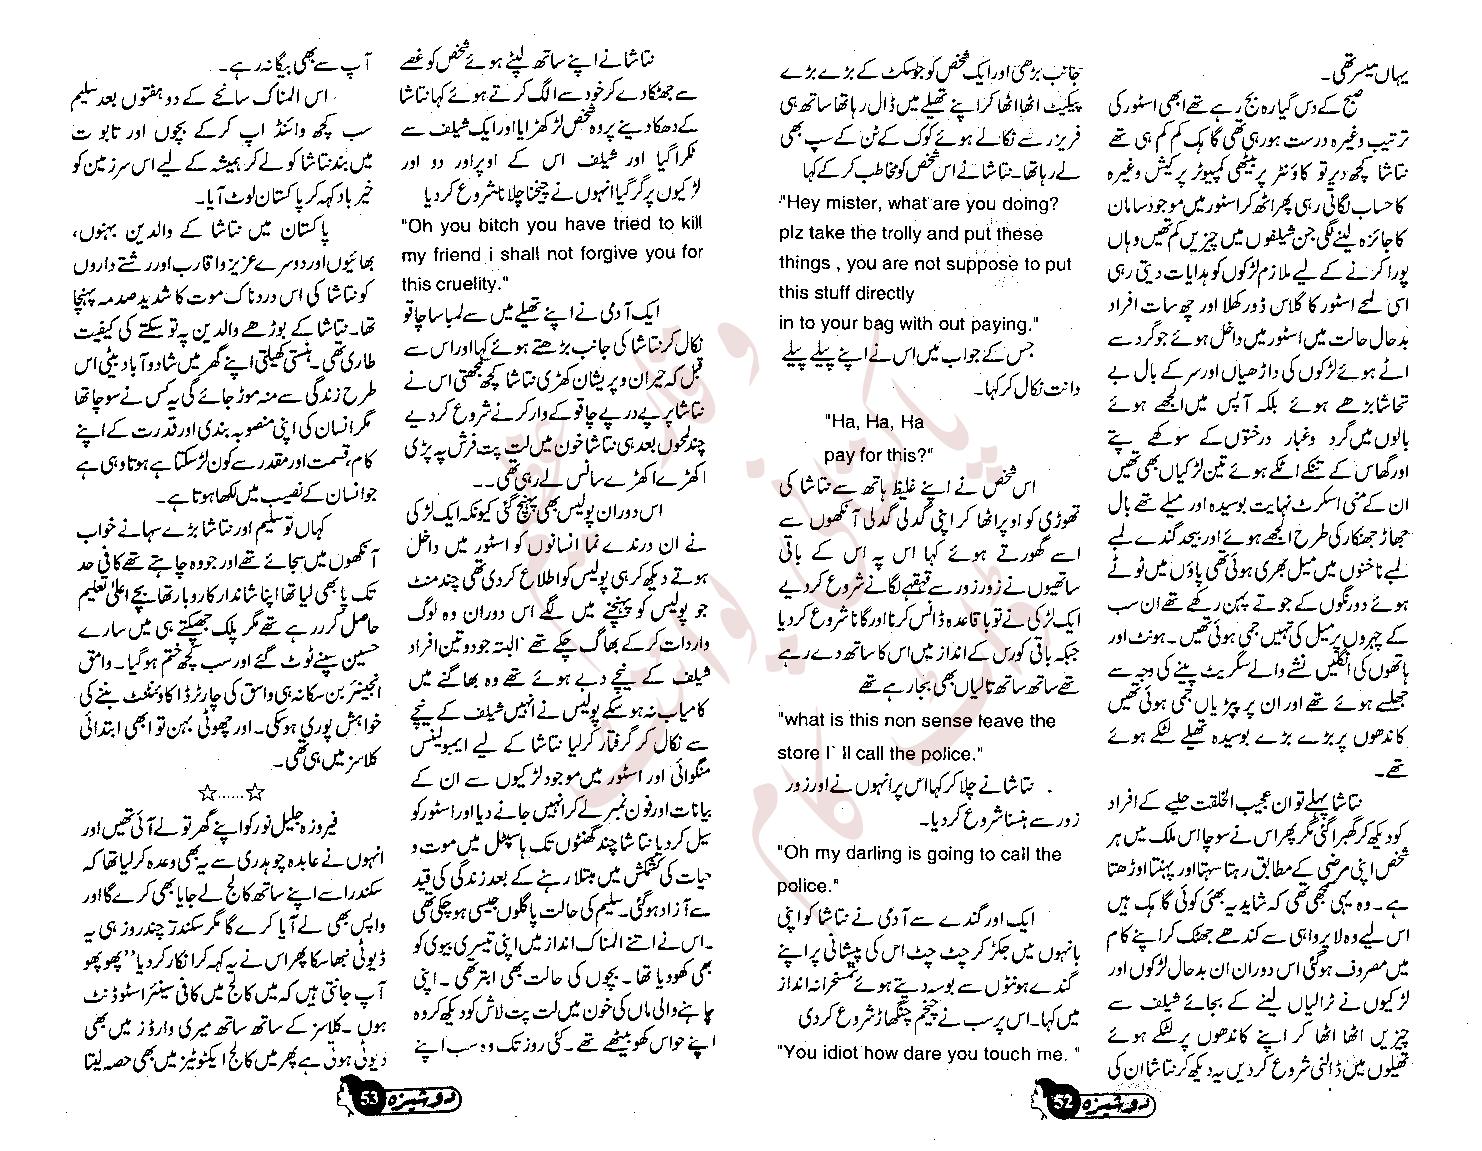 یہاں میسر تھی۔
صبح کے دس گیارہ بج رہے تھے ابھی اسٹور کی
ترتیب وغیرہ درست ہو رہی تھی گاہک کم کم ہی تھے
نتاشا کچھ دیر تو کاؤنٹر پر بیٹھی کمپیوٹر پر کیش وغیرہ
کا حساب لگاتی رہی پھر اٹھ کر اسٹور میں موجود سامان
کا جائزہ لینے لگی جن شیلفوں میں چیزیں کم تھیں وہاں
پورا کرنے کے لیے ملازم لڑکوں کو ہدایات دیتی رہی
اسی لمحے اسٹور کا گلاس ڈور کھلا اور چھ سات افراد
بدحال حالت میں اسٹور میں داخل ہوئے جو گرد سے
اٹے ہوئے لڑکوں کی داڑھیاں اور سر کے بال بے
تحاشا بڑھے ہوئے بلکہ آپس میں الجھے ہوئے
بالوں میں گرد و غبار درختوں کے سوکھے پتے
اور گھاس کے تنکے اٹکے ہوئے تین لڑکیاں بھی تھیں
ان کے منی اسکرٹ نہایت بوسیدہ اور میلے تھے بال
جھاڑ جھنکار کی طرح الجھے ہوئے اور بیحد گندے لمبے
لمبے ناخنوں میں میل بھری ہوئی تھی پاؤں میں ٹوٹے
ہوئے دو رنگوں کے جوتے پہن رکھے تھے ان سب
کے چہروں پر میل کی تہیں جمی ہوئی تھیں۔ ہونٹ اور
ہاتھوں کی انگلیں نشے والے سگریٹ پینے کی وجہ سے
جھلسے ہوئے تھے اور ان پر پپڑیاں جمی ہوئی تھیں
کاندھوں پر بڑے بڑے بوسیدہ تھیلے لٹکے ہوئے
تھے۔
نتاشا پہلے تو ان عجیب الخلقت حلیے کے افراد
کو دیکھ کر گھبرا گئی مگر پھر اس نے سوچا اس ملک میں ہر
شخص اپنی مرضی کے مطابق رہتا سہتا اور پہنتا اوڑھتا
ہے۔ وہ یہی سمجھی تھی کہ شاید یہ بھی کوئی گاہک ہیں
اس لیے وہ لا پرواہی سے کندھے جھٹک کر اپنے کام
میں مصروف ہو گئی اس دوران ان بدحال لڑکوں اور
لڑکیوں نے ٹرالیاں لینے کے بجائے شیلف سے
چیزیں اٹھا اٹھا کر اپنے کاندھوں پر لٹکے ہوئے
تھیلوں میں ڈالنی شروع کر دیں یہ دیکھ کر نتاشا ان کی
جانب بڑھی اور ایک شخص کو جو بسکٹ کے بڑے بڑے
پیکٹ اٹھا اٹھا کر اپنے تھیلے میں ڈال رہا تھا ساتھ ہی
فریزر سے نکالے ہوئے کوک کے ٹن کے سپ بھی
لے رہا تھا۔ نتاشا نے اس شخص کو مخاطب کر کے کہا
"Hey mister, what are you doing?
plz take the trolly and put these
things , you are not suppose to put
this stuff directly
in to your bag with out paying."
جس کے جواب میں اس نے اپنے پیلے پیلے
دانت نکال کر کہا۔
"Ha, Ha, Ha
pay for this?"
اس شخص نے اپنے غلیظ ہاتھ سے نتاشا کی
تھوڑی کو اوپر اٹھا کر اپنی گدلی گدلی آنکھوں سے
اسے گھورتے ہوئے کہا اس پہ اس کے باقی
ساتھیوں نے زور زور سے قہقہے لگانے شروع کر دیے
ایک لڑکی نے تو باقاعدہ ڈانس کرنا اور گانا شروع کر دیا
جبکہ باقی کورس کے انداز میں اس کا ساتھ دے رہے
تھے ساتھ ساتھ تالیاں بھی بجا رہے تھے
"what is this non sense leave the
store I` ll call the police."
نتاشا نے چلا کر کہا اس پر انہوں نے اور زور
زور سے ہنسنا شروع کر دیا۔
"Oh my darling is going to call the
police."
ایک اور گندے سے آدمی نے نتاشا کو اپنی
بانہوں میں جکڑ کر چٹ چٹ اس کی پیشانی پر اپنے
گندے ہونٹوں سے بوسہ دیتے ہوئے تمسخرانہ انداز
میں کہا۔ اس پر سب نے چیخم چنگھاڑ شروع کر دی
"You idiot how dare you touch me. "
دوشیزہ 52
نتاشا نے اپنے ساتھ لپٹے ہوئے شخص کو غصے
سے جھٹکا دے کر خود سے الگ کرتے ہوئے کہا نتاشا
کے دھکا دینے پر وہ شخص لڑکھڑایا اور ایک شیلف سے
ٹکرا گیا اور شیلف اس کے اوپر اور دو اور
لڑکیوں پر گر گیا انہوں نے چیخنا چلانا شروع کر دیا
"Oh you bitch you have tried to kill
my friend i shall not forgive you for
this cruelity."
ایک آدمی نے اپنے تھیلے میں سے لمبا سا چاقو
نکال کر نتاشا کی جانب بڑھتے ہوئے کہا اور اس سے
قبل کہ حیران و پریشان کھڑی نتاشا کچھ سمجھتی اس نے
نتاشا پر پے در پے چاقو کے وار کرنے شروع کر دیے
چند لمحوں بعد ہی نتاشا خون میں لت پت فرش پہ پڑی
اکھڑے اکھڑے سانس لے رہی تھی۔۔
اس دوران پولیس بھی پہنچ گئی کیونکہ ایک لڑکی
نے ان درندے نما انسانوں کو اسٹور میں داخل
ہوتے دیکھ کر ہی پولیس کو اطلاع کر دی تھی چند منٹ
جو پولیس کو پہنچنے میں لگے اس دوران وہ لوگ
واردات کر کے بھاگ چکے تھے البتہ جو دو تین افراد
شیلف کے نیچے دبے ہوئے تھے وہ بھاگنے میں
کامیاب نہ ہو سکے پولیس نے انہیں شیلف کے نیچے
سے نکال کر گرفتار کر لیا نتاشا کے لیے ایمبولینس
منگوائی اور اسٹور میں موجود لڑکیوں سے ان کے
بیانات اور فون نمبر لے کر انہیں جانے دیا اور اسٹور کو
سیل کر دیا نتاشا چند گھنٹوں تک ہاسپٹل میں موت و
حیات کی کشمکش میں مبتلا رہنے کے بعد زندگی کی قید
سے آزاد ہو گئی۔ سلیم کی حالت پاگلوں جیسی ہو چکی تھی
۔اس نے اتنے المناک انداز میں اپنی تیسری بیوی کو
بھی کھو دیا تھا۔ بچوں کی حالت بھی ابتر تھی۔ اپنی
چاہنے والی ماں کی خون میں لت پت لاش کو دیکھ کر وہ
اپنے حواس کھو بیٹھے تھے۔ کئی روز تک وہ سب اپنے
آپ سے بھی بیگانہ رہے۔
اس المناک سانحے کے دو ہفتوں بعد سلیم
سب کچھ وائنڈ اپ کر کے بچوں اور تابوت
میں بند نتاشا کو لے کر ہمیشہ کے لیے اس سرزمین کو
خیر باد کہہ کر پاکستان لوٹ آیا۔
پاکستان میں نتاشا کے والدین بہنوں،
بھائیوں اور دوسرے عزیز و اقارب اور رشتے داروں
کو نتاشا کی اس دردناک موت کا شدید صدمہ پہنچا
تھا۔ نتاشا کے بوڑھے والدین پہ تو سکتے کی کیفیت
طاری تھی۔ ہنستی کھیلتی اپنے گھر میں شاد و آباد بیٹی اس
طرح زندگی سے منہ موڑ جائے گی یہ کس نے سوچا تھا
مگر انسان کی اپنی منصوبہ بندی اور قدرت کے اپنے
کام، قسمت اور مقدر سے کون لڑ سکتا ہے ہوتا وہی ہے
جو انسان کے نصیب میں لکھا ہوتا ہے۔
کہاں تو سلیم اور نتاشا بڑے سہانے خواب
آنکھوں میں سجائے تھے اور جو وہ چاہتے تھے کافی حد
تک پا بھی لیا تھا اپنا شاندار کاروبار تھا بچے اعلیٰ تعلیم
حاصل کر رہے تھے مگر پلک جھپکتے ہی میں سارے
حسین سپنے ٹوٹ گئے اور سب کچھ ختم ہو گیا۔ وامق
انجینئر بن سکا نہ ہی واسق کی چارٹرڈ اکاؤنٹنٹ بننے کی
خواہش پوری ہو سکی۔ اور چھوٹی بہن تو ابھی ابتدائی
کلاسز میں ہی تھی۔
☆......☆
فیروزہ جلیل نور کو اپنے گھر تو لے آئی تھیں اور
انہوں نے عابدہ چوہدری سے یہ بھی وعدہ کر لیا تھا کہ
سکندر اسے اپنے ساتھ کالج لے جایا بھی کرے گا اور
واپس بھی لے آیا کرے گا مگر سکندر چند روز ہی یہ
ڈیوٹی نبھا سکا پھر اس نے یہ کہہ کر انکار کر دیا ''پھوپھو
آپ جانتی ہیں کہ میں کالج میں کافی سینئر اسٹوڈنٹ
ہوں۔ کلاسز کے ساتھ ساتھ میری وارڈز میں بھی
ڈیوٹی ہوتی ہے پھر میں کالج ایکٹوٹیز میں بھی حصہ لیتا
دوشیزہ 53